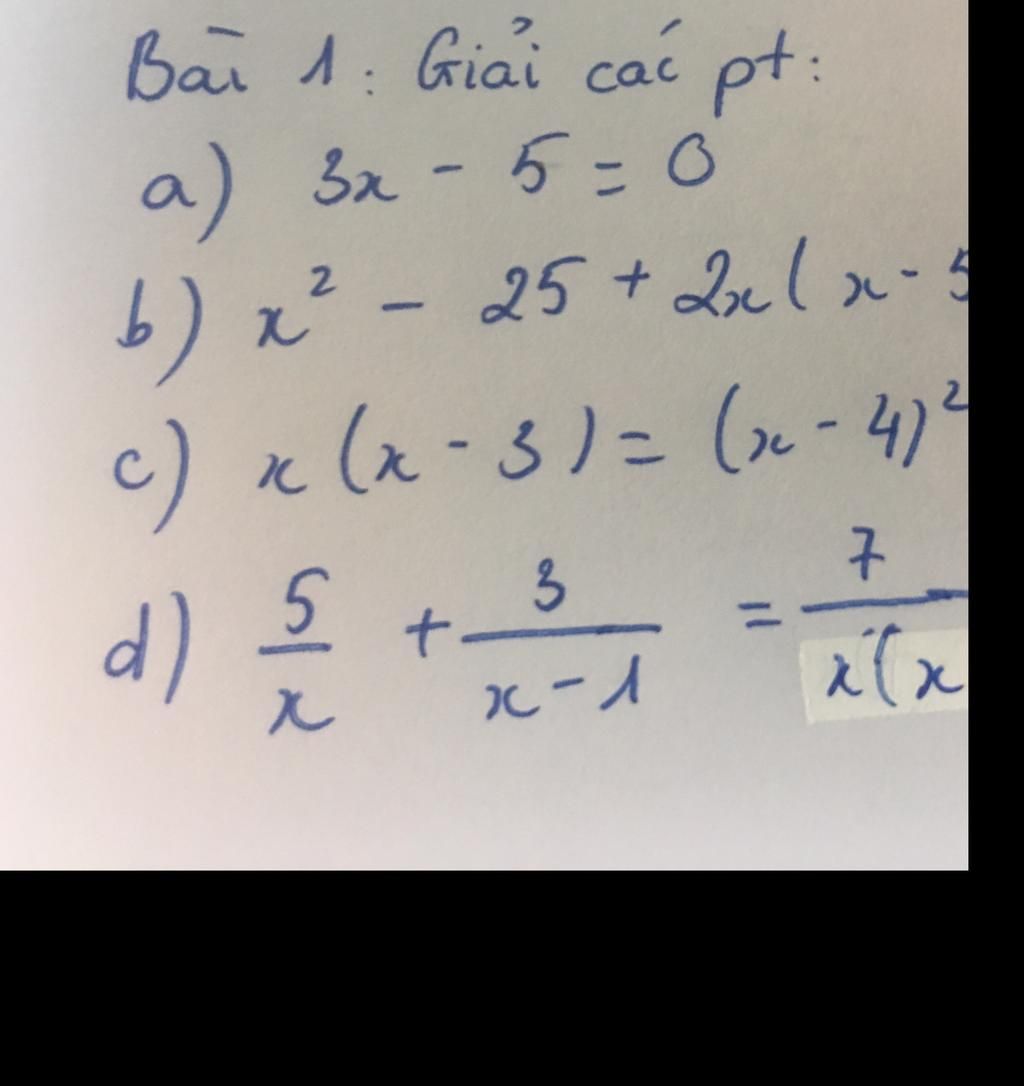 Bài 1: Giải các pt:
a) 3x - 5 = 0
b) x² - 25 + 2x(x - 5
c) x(x - 3) = (x - 4)²
d) 5/x + 3/(x - 1) = 7/x(x